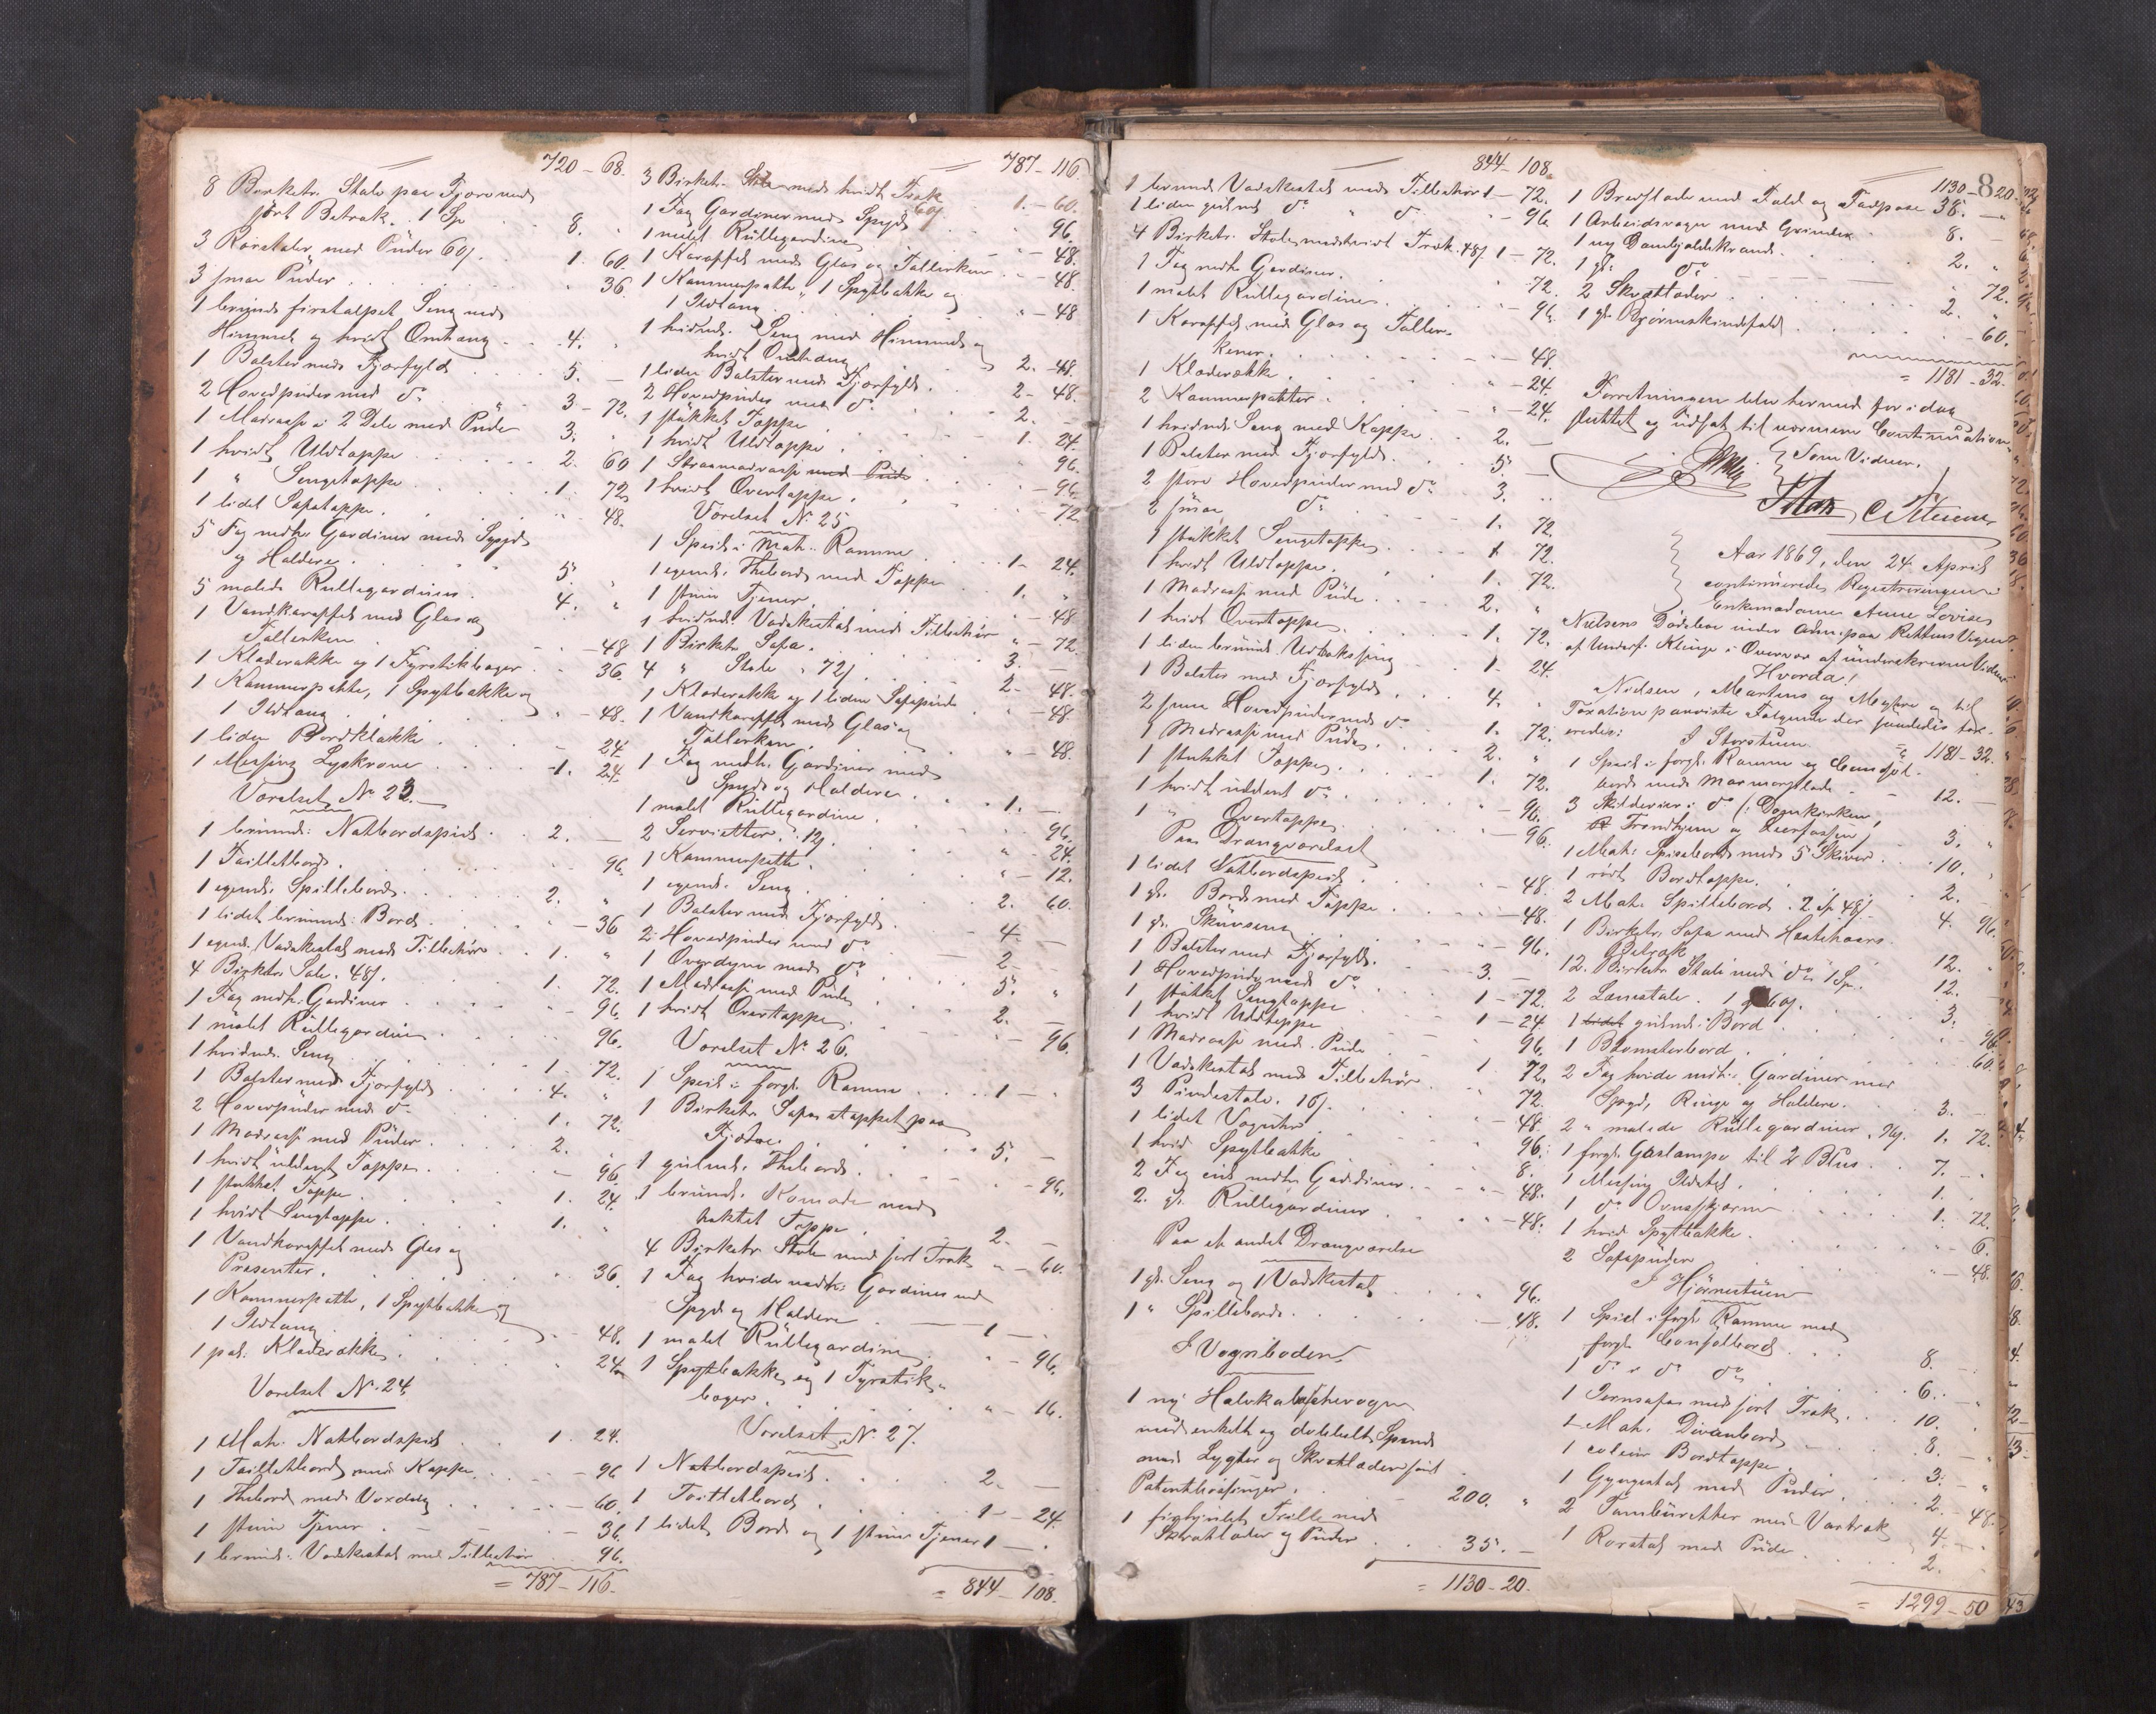 720 - 68.
8 Birketr. Stole paa Fjore med
sort Betræk. 1 Sp. 8.
3 Rørstoler med Puder 60ſ. 1. 60.
3 smaa Puder 36
1 brunmd. firstolpet Seng med
Himmel og hvidt Omhæng 4.
1 Bolster med Fjorfyld 5. -
2 Hovedpuder med do 3 - 72.
1 Madrasse i 2 Dele med Pude 3.
1 hvidt Uldtæppe 2. 60
1 " Sengetæppe 1. 72
1 lidet Sofatæppe. 48.
5 Fag nedhr. Gardiner med Spyd
og Holdere. 5.
5 malede Rullegardiner. 4. "
1 Vandkaraffel med Glas og
Tallerken - 48
1 Klæderække og 1 Fyrstikbæger 36.
1 Kammerpotte, 1 Spytbakke og
1 Ildtang - 48.
1 liden Bordklokke - 24
1 Messing Lyskrone 1. 24.
Værelset No 23.
1 brunmd. Natbordspeil 2. -
1 Toiletbord. 96.
1 egemd. Spillebord. 2.
1 lidet brunmd. Bord - 36
1 egemd. Vadskestol med Tilbehør 1. "
4 Birketr. Stole. 48ſ. 1. 72.
1 Fag nedhr. Gardiner - 96.
1 malet Rullegardin 96.
1 hvidmd. Seng 1. 72.
1 Bolster med Fjorfyld 4.
2 Hovedpuder med do 1. 72.
1 Madrasse med Puder 2.
1 hvidt uldent Tæppe - 96.
1 stukket Tæppe 1. 24.
1 hvidt Sengtæppe. 1. "
1 Vandkaraffel med Glas og
Presenter. 36.
1 Kammerpotte, 1 Spytbakke og
1 Ildtang 48.
1 pol. Klæderække 24.
Værelset No 24.
1 Mah. Natbordspeil 1. 24.
1 Toiletbord med Kappe - 96
1 Thebord med Voxdug - 60.
1 stum Tjener - 36
1 brunmd. Vadskestol med Tilbehør 96.
= 787 - 116.
787 - 116
3 Birketr. Stole med hvidt Træk 60ſ 1. - 60.
1 Fag Gardiner med Spyd 96.
1 malet Rullegardin - 48.
1 Karaffel med Glas og Tallerken - 48.
1 Kammerpotte, 1 Spytbakke og
1 Ildtang - 48
1 hvidmd. Seng med Himmel og
hvidt Omhæng 2. - 48.
1 liden Bolster med Fjorfyld. 2 - 48.
2 Hovedpuder med do 2. -
1 stukket Tæppe 1. 24.
1 hvidt Uldtæppe. 96.
1 Straamadrasse med Pude - 96.
1 hvidt Overtæppe. 72
Værelset No 25
1 Speil i Mah. Ramme 1 - 24.
1 egemd. Thebord med Tæppe 1. "
1 stum Tjener. - 48
1 hvidmd. Vadskestol med Tilbehør - 72.
1 Birketr. Sofa. 3. -
4 " Stole 72ſ. 2 - 48.
1 Klæderække og 1 liden Sofapude - 48
1 Vandkaraffel med Glas og
Tallerken. - 48.
1 Fag nedhr. Gardiner med
Spyd og Holdere 1. -
1 malet Rullegardine. 96.
2 Servietter. 12ſ. " - 24.
1 Kammerpotte. " - 12.
1 egemd. Seng 2. 60.
1 Bolster med Fjorfyld 4. -
2 Hovedpuder med do 2.
1 Overdyne med do 5. "
1 Madrasse med Pude 2. -
1 hvidt Overtæppe. - 96.
Værelset No 26.
1 Speil i forgt. Ramme 1 - .
1 Birketr. Sofa stoppet paa
Fjædre. 5. -
1 gulmd. Thebord. - 96.
1 brunmd. Komode med
heklet Tæppe 2. -
4 Birketr. Stole med sort Træk " - 60.
1 Fag hvide nedhr. Gardiner med
Spyd og Holdere 1 - .
1 malet Rullegardin - 96.
1 Spytbakke og 1 Fyrstik-
bæger. " - 16.
Værelset No 27.
1 Natbordspeil. 2. -
1 Toiletbord 1 - 24.
1 lidet Bord og 1 stum Tjener 1 - .
= 844 - 108.
844 - 108.
1 brunmd Vadskestol med Tilbehør 1 - 72.
1 liden gulmd do " do - 96.
4 Birketr. Stole med hvidt Træk. 48ſ 1 - 72.
1 Fag nedhr Gardiner. 72
1 malet Rullegardine - 96.
1 Karaffel med Glas og Taller-
kener. - 48.
1 Klæderække - 24.
2 Kammerpotter - 24.
1 hvidmd. Seng med Kappe 2. -
1 Bolster med Fjorfyld. 5 -
2 store Hovedpuder med do 3. "
2 smaa do 1. 72.
1 stukket Sengetæppe 1. 72.
1 hvidt Uldtæppe. 1. 72.
1 Madrasse med Pude 2. "
1 hvidt Overtæppe 1. 72.
1 liden brunmd. Udtræksseng 1 - 24.
1 Bolster med Fjorfyld 4. "
2 smaa Hovedpuder med do 1. 72.
1 Madrasse med Pude 2. "
1 stukket Tæppe 1. 72.
1 hvidt uldent do - 96.
1 " Overtæppe - 96.
Paa Drengværelset
1 lidet Natbordspeil - 48.
1 gt. Bord med Tæppe - 48.
1 gt. Skuvseng - 96.
1 Bolster med Fjorfyld. 3. -
1 Hovedpude med do 1 - 72.
1 stukket Sengtæppe 1 - 24.
1 hvidt Uldtæppe 96.
1 Madrasse med Pude 1 72.
1 Vadskestol med Tilbehør 72.
3 Pindestole. 16ſ. 48.
1 lidet Væguhr 96.
1 hvid Spytbakke 8.
2 Fag nedhr Gardiner - 48.
2 gt. Rullegardiner - 48.
Paa et andet Drengværelse
1 gt. Seng og 1 Vadskestol 96.
1 " Spillebord. - 48.
I Vognboden.
1 ny Halvkaleschevogn
med enkelt og dobbelt Spænd
med Lygter og Skvætlæder samt
Patentbøsninger. 200. "
1 firhjulet Trille med
Skvætlæder og Puder 35. -
= 1130 - 20.
8
1130 - 20.
1 Bredslæde med Fald og Fodpose 38. -
1 Arbeidsvogn med Grinder 8. -
1 ny Dombjældekrands 2. "
1 gt. do 72.
2 Skvætlæder 2. "
1 gt. Bjørnskindsfald - 60.
= 1181 - 32.
Forretningen blev hermed for idag
sluttet og udsat til nærmere Continuation.
Som Vidner.
Aar 1869, den 24 April
continueredes Registreringen i
Enkemadame Anne Lovise
Nielsens Dødsbo under Adm. paa Rettens Vegne
af Underf. Klinge i Overvær af underskrevne Vidner
Hvorda!
Nielsen, Martens og Meyere og til
Taxation paaviste Følgende der saaledes tax-
eredes: 1181 - 32.
I Storstuen
1 Speil i forgt. Ramme og Consol-
bord med Marmorplade 12. -
3 Skilderier i do (: Domkirken,
Trondhjem og Leerfossen) 3. "
1 Mah. Spisebord med 5 Skiver 10.
1 rødt Bordtæppe. 2. -
2 Mah. Spillebord. 2 Sp 48ſ. 4. 96.
1 Birketr. Sofa med Hestehaars
Betræk 12. "
12. Birketr Stole med do 1 Sp. 12.
2 Lænestole. 1 60ſ. 3.
1 lidet gulmd. Bord 96
1 Blomsterbord 60.
2 Fag hvide nedhr. Gardiner med
Spyd, Ringe og Holdere. 3. -
2 " malede Rullegardiner. 96ſ. 1. 72.
1 forgt. Gaslampe til 2 Blus 7. -
1 Messing Ildstel. 1.
1 do Ovnsskjærm 1. 72.
1 hvid Spytbakke. 6.
2 Sofapuder - 48.
I Hjørnestuen
1 Speil i forgt. Ramme med
forgt. Consolbord 8. -
1 do " do do 6. -
1 Jernsofa med sort Træk 10.
1 Mah. Divanbord 8. -
1 couleur Bordtæppe. 3. "
1 Gyngestol med Puder 2. - 48.
2 Tambouretter med Vartræk 4. -
1 Rørstol med Pude 2.
= 1299 - 50